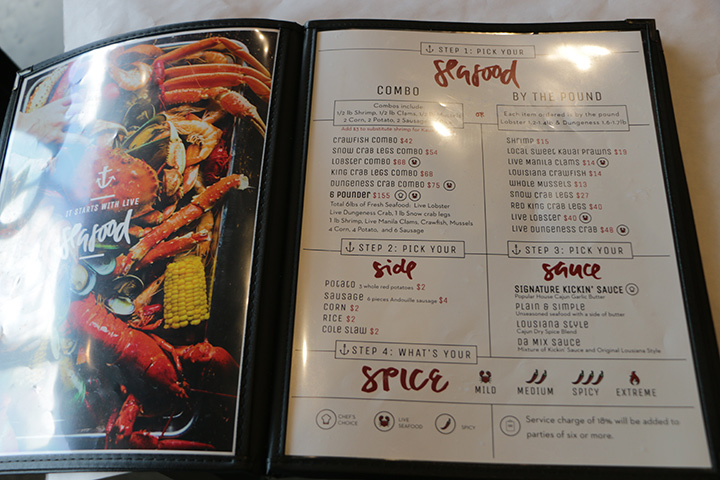 IT STARTS WITH LIVE
seafood
STEP 1: PICK YOUR
seafood
COMBO
Combos include
1/2 lb Shrimp, 1/2 lb Clams, 1/2
2 Corn, 2 Potato, 2 Sausage
Add $3 to substitute shrimp for
CRAWFISH COMBO $42
SNOW CRAB LEGS COMBO $54
LOBSTER COMBO $68
KING CRAB LEGS COMBO $68
DUNGENESS CRAB COMBO $75
6 POUNDER $155
Total 6lbs of Fresh Seafood: Live Lobster
Live Dungeness Crab, 1 lb Snow crab legs
1 lb Shrimp, Live Manila Clams, Crawfish, Mussels
4 Corn, 4 Potato, and 6 Sausage
OR
BY THE POUND
Each item ordered is by the pound
Lobster 1.2-1.4lb & Dungeness 1.6-1.7lb
SHRIMP $15
LOCAL SWEET KAUAI PRAWNS $19
LIVE MANILA CLAMS $14
LOUISIANA CRAWFISH $14
WHOLE MUSSELS $13
SNOW CRAB LEGS $27
RED KING CRAB LEGS $40
LIVE LOBSTER $40
LIVE DUNGENESS CRAB $48
STEP 2: PICK YOUR
side
POTATO 3 whole red potatoes $2
SAUSAGE 6 pieces Andouille sausage $4
CORN $2
RICE $2
COLE SLAW $2
STEP 3: PICK YOUR
sauce
SIGNATURE KICKIN' SAUCE
Popular House Cajun Garlic Butter
PLAIN & SIMPLE
Unseasoned seafood with a side of butter
LOUSIANA STYLE
Cajun Dry Spice Blend
DA MIX SAUCE
Mixture of Kickin' Sauce and Original Lousiana Style
STEP 4: WHAT'S YOUR
SPICE
MILD
MEDIUM
SPICY
EXTREME
CHEF'S
CHOICE
LIVE
SEAFOOD
SPICY
Service charge of 18% will be added to
parties of six or more.